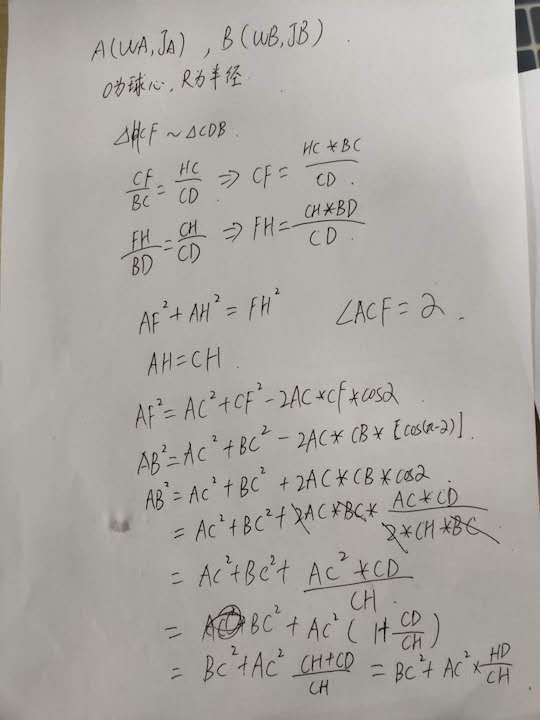 A(WA,JA) , B(WB,JB)
O为球心,R为半径
△HCF ~ △CDB
CF/BC = HC/CD => CF = HC*BC/CD.
FH/BD = CH/CD => FH = CH*BD/CD
AF²+AH² = FH² ∠ACF=2.
AH=CH
AF²= AC²+CF²-2AC*CF*cos2
AB²=AC²+BC²-2AC*CB*[cos(π-2)].
AB²=AC²+BC²+2AC*CB*cos2.
= AC²+BC²+2AC*BC* AC*CD/2*CH*BC
= AC²+BC²+ AC²*CD/CH.
= BC²+AC²(1+CD/CH)
= BC²+AC² CH+CD/CH = BC²+AC²*HD/CH